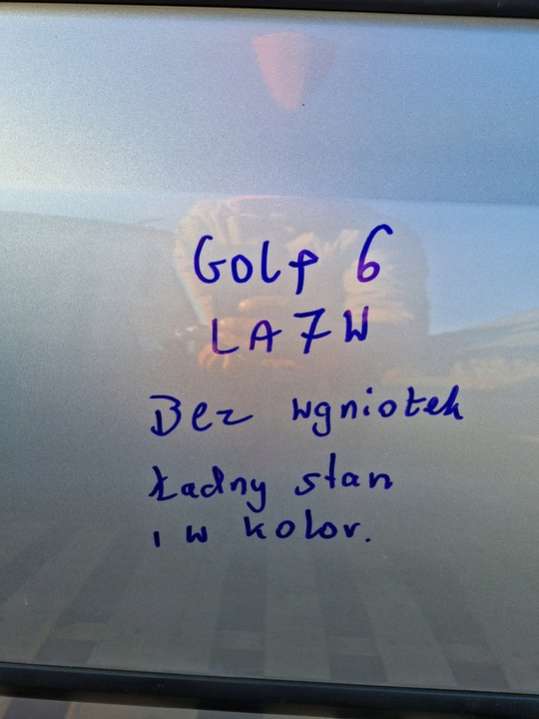 Golf 6
LA7W
Bez wgniotek
Ładny stan
i w kolor.